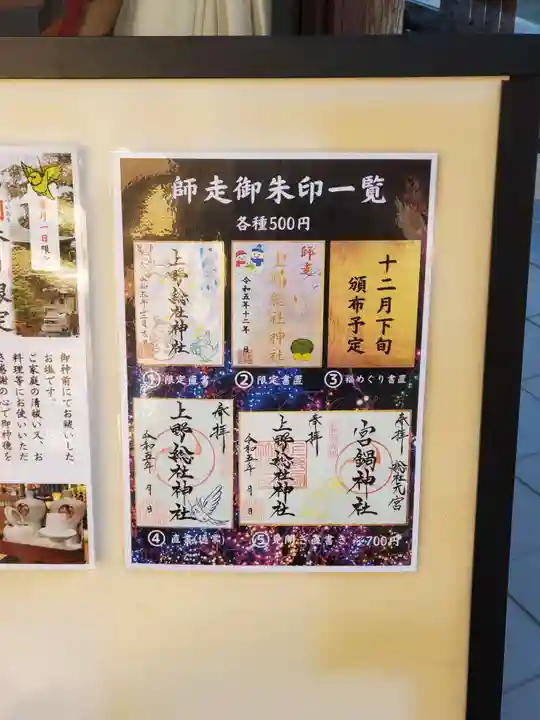 師走御朱印一覧
各種500円
上野総社神社
師走
上野総社神社
令和五年十二月 日
十二月下旬
頒布予定
①限定直書
②限定書置
③福めぐり書置
奉拝
上野総社神社
令和五年 月 日
奉拝
上野総社神社
令和五年 月 日
奉拝 総社元宮
宮鍋神社
④直書(通常)
⑤見開き直書き…700円
月一日限
限定
御神前にてお祓いした
お塩です。
ご家庭の清祓い又、お
料理等にお使いいただ
き感謝の心で御神徳を